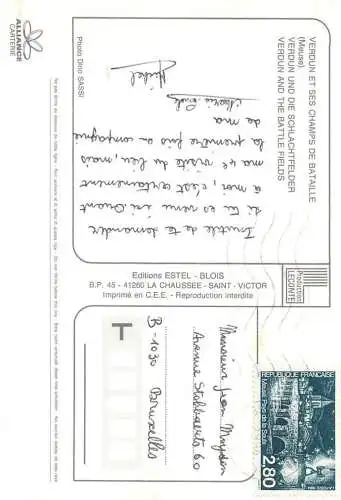 VERDUN ET SES CHAMPS DE BATAILLE
(Meuse)
VERDUN UND DIE SCHLACHTFELDER
VERDUN AND THE BATTLE FIELDS
Inutile de te demander
si tu es venu ici. Quant
à moi, c'est certainement
ma 4e visite du lieu, mais
la première fois en compagnie
de ma
Michel
Photo Dino SASSI
ALLIANCE
CARTERIE
Editions ESTEL - BLOIS
B.P. 45 - 41260 LA CHAUSSEE - SAINT - VICTOR
Imprimé en C.E.E. - Reproduction interdite
Production
LECONTE
REPUBLIQUE FRANÇAISE
2,80
Monsieur Jean
Avenue Stobbaerts 60
B-1030 Bruxelles